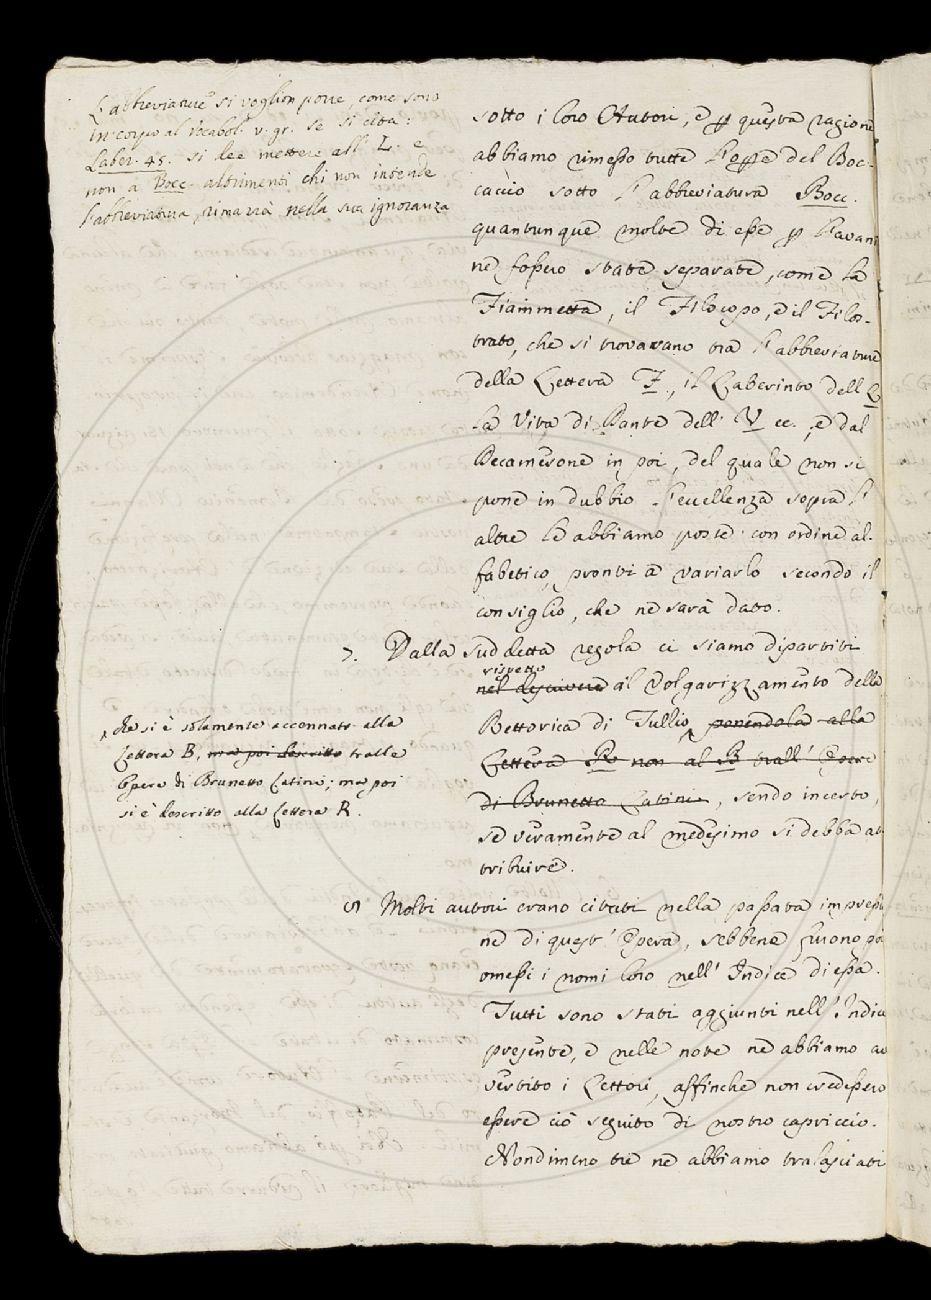 L'abbreviature si voglion porre, come sono
in corpo al Vocabol. v. gr. se si cita:
Laber. 45. si dee mettere all' L. e
non a Bocc. altrimenti chi non intende
l'abbreviatura, rimarrà nella sua ignoranza
sotto i loro Autori, e p questa ragione
abbiamo rimesso tutte l'opse del Boc-
caccio sotto l'abbreviatura Bocc.
quantunque molte di esse p l'avan
ne fossero state separate, come la
Fiammetta, il Filocopo, e il Filos-
trato, che si trovavano tra l'abbreviature
della Lettera F., il Laberinto dell L
la Vita di Dante dell' V ec., e dal
Decamerone in poi, del quale non si
pone in dubbio l'eccellenza sopra l'
altre le abbiamo poste con ordine al-
fabetico, pronti a variarlo secondo il
consiglio, che ne sarà dato.
7. Dalla suddetta regola ci siamo dipartiti
rispetto
nel descivere al Volgarizzamento della
Rettorica di Tullio, ponendola alla
Lettera R. non al B trall' Opere
di Brunetto Latini, sendo incerto,
se veramente al medesimo si debba at
tribuire.
che si è solamente accennato alla
Lettera B, ma poi descritto tralle
Opere di Brunetto Latini; ma poi
si è descritto alla Lettera R.
Molti autori erano citati nella passata impressi
ne di quest' Opera, sebbene furono po
omessi i nomi loro nell' Indice di essa.
Tutti sono stati aggiunti nell' Indice
presente, e nelle note ne abbiamo av
vertito i Lettori, affinche non credessero
essere ciò seguito di nostro capriccio.
Nondimeno tre ne abbiamo tralasciati